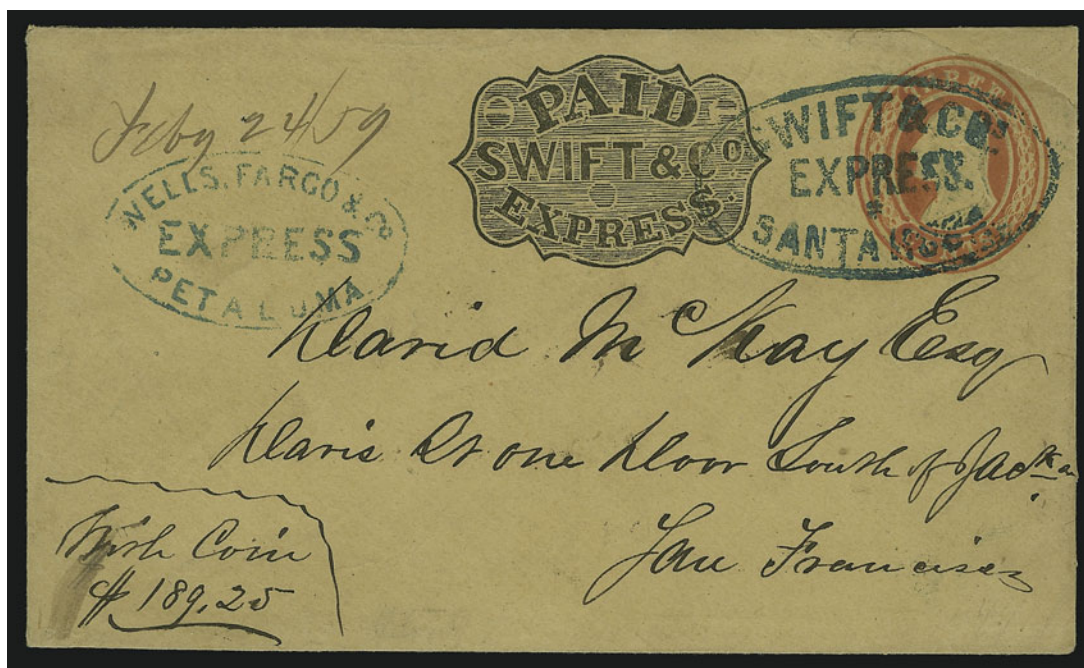 Feby 24/59
WELLS, FARGO & Co
EXPRESS
PETALUMA
PAID
SWIFT & Co.
EXPRESS.
SWIFT & CO'S
EXPRESS.
SANTA ROSA
THREE
David McKay Esq
Davis St one door South of Jackn
San Francisco
With Coin
$189.25